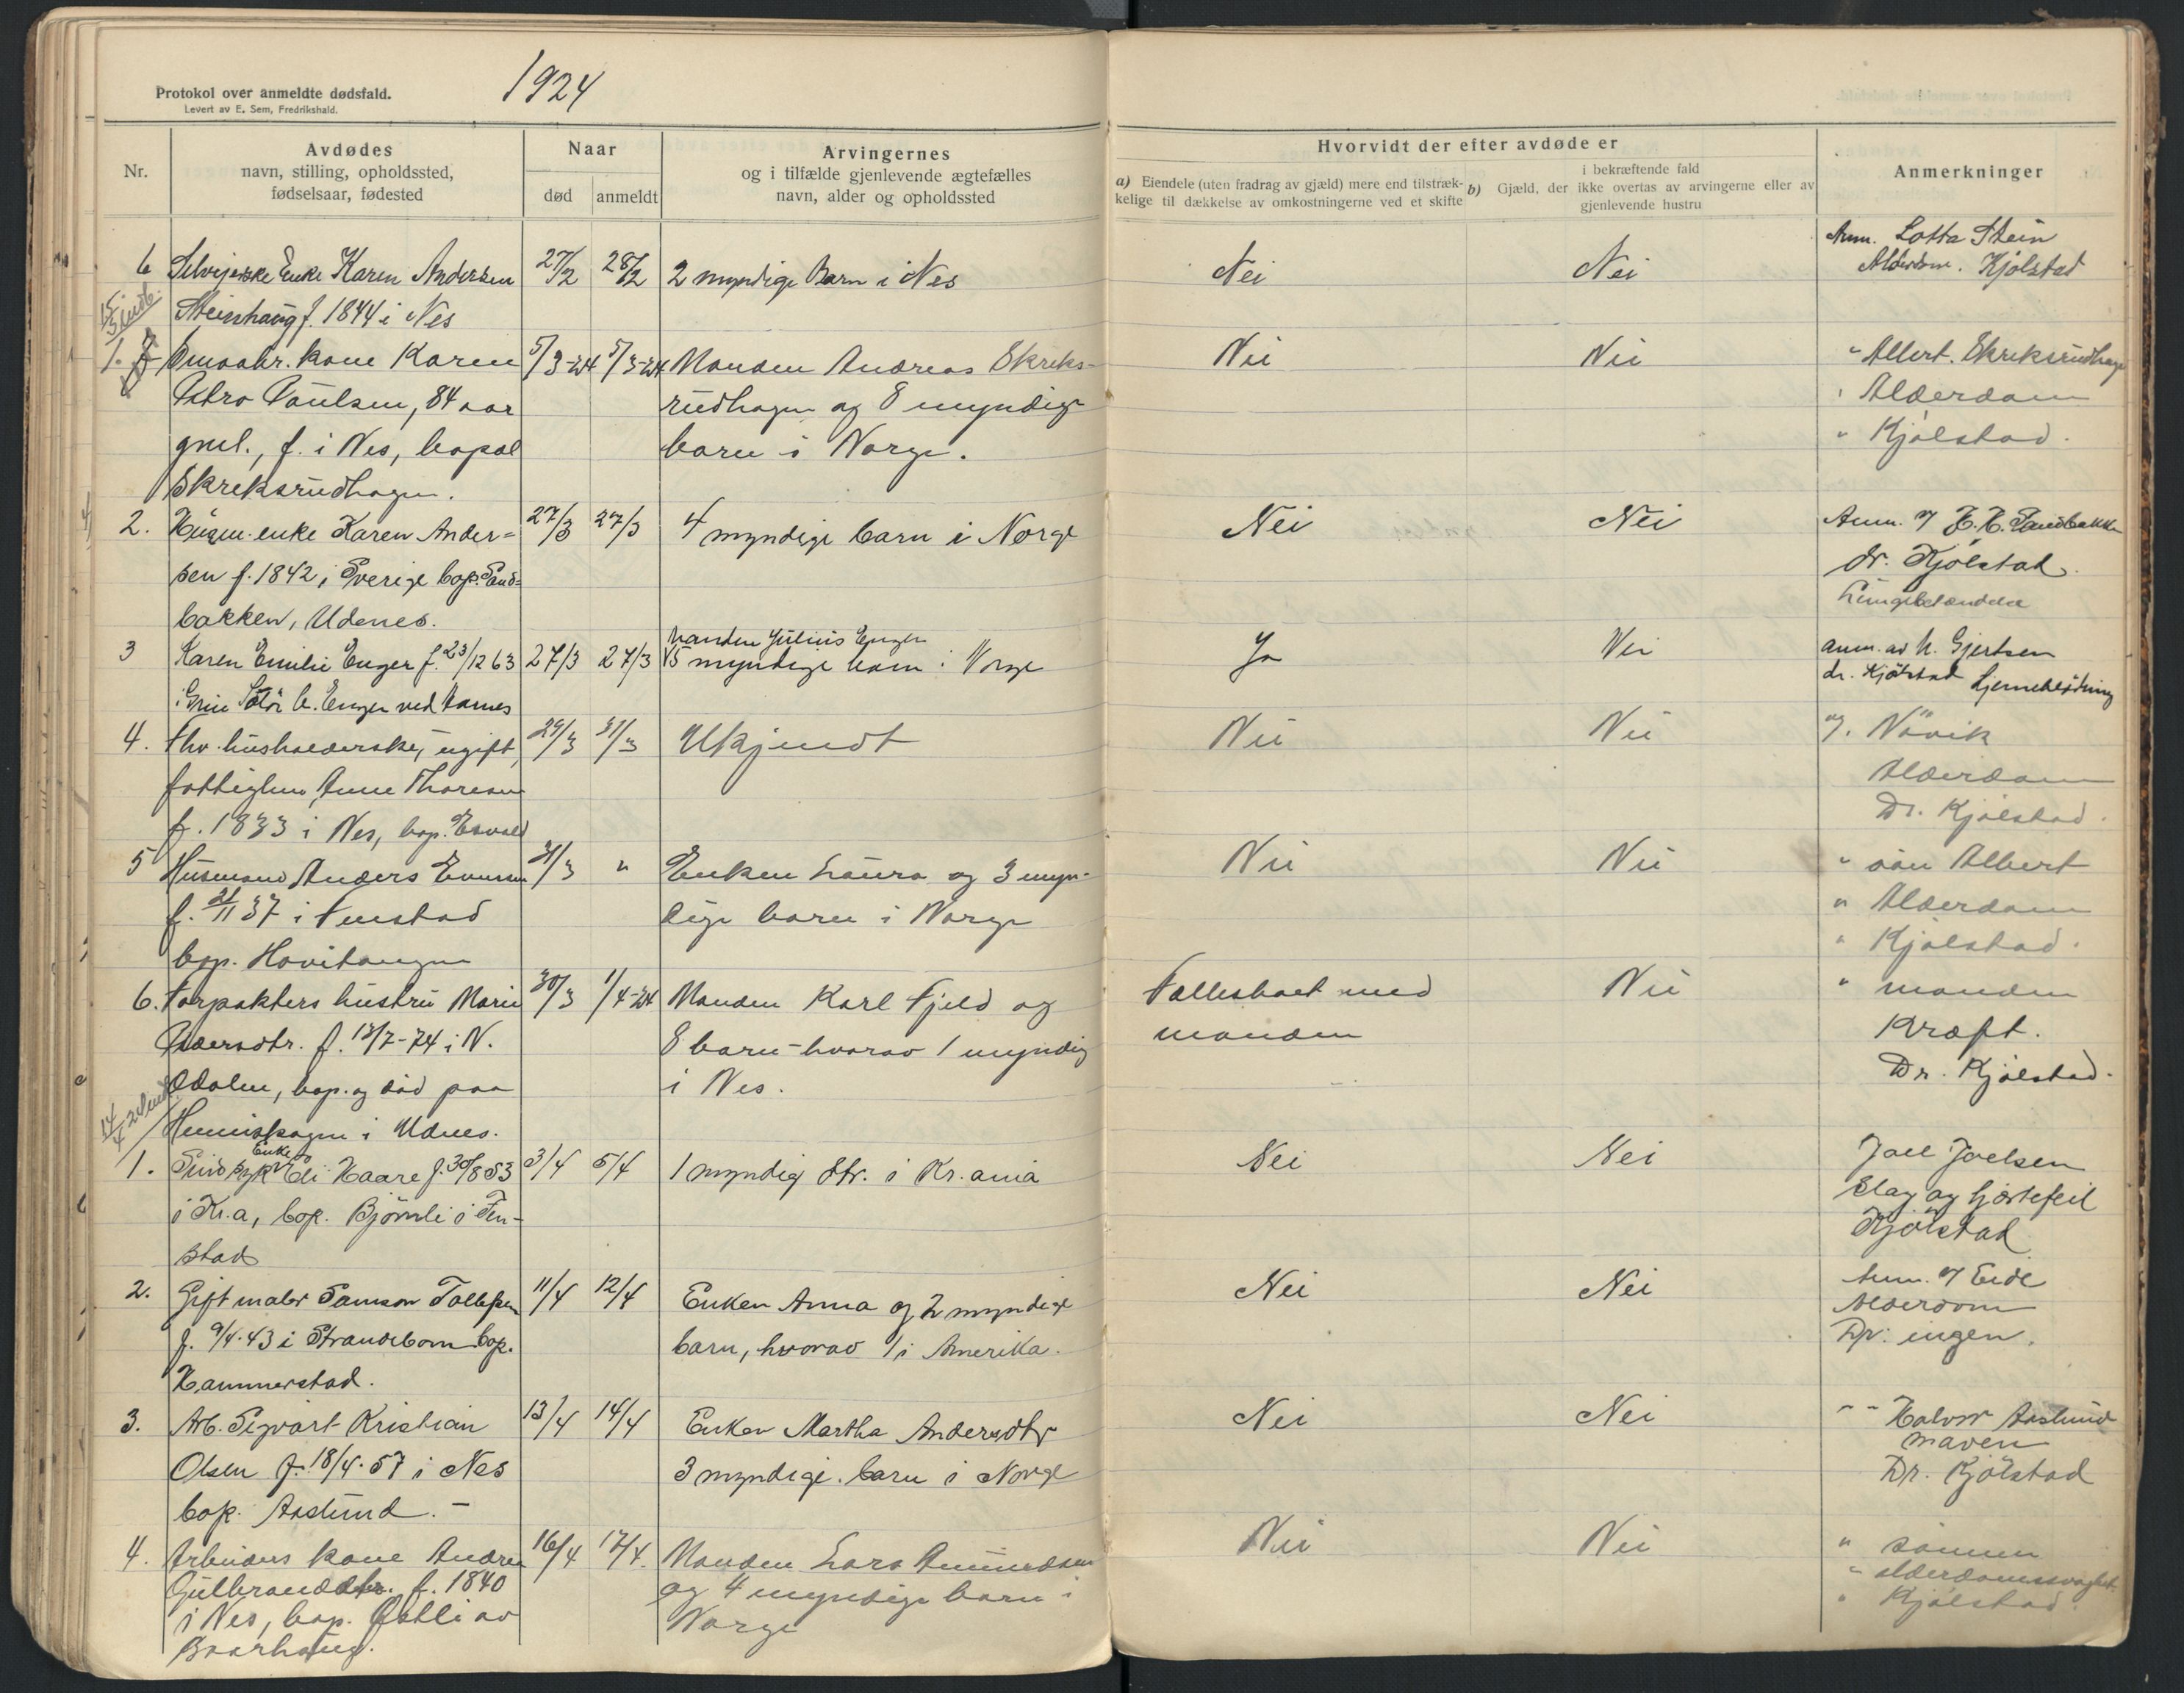 1924
Protokol over anmeldte dødsfald.
Levert av E. Sem, Fredrikshald.
Nr.
Avdødes
navn, stilling, opholdssted,
fødselsaar, fødested
Naar
død
anmeldt
Arvingernes
og i tilfælde gjenlevende ægtefælles
navn, alder og opholdssted
Hvorvidt der efter avdøde er
a) Eiendele (uten fradrag av gjæld) mere end tilstræk-
kelige til dækkelse av omkostningerne ved et skifte
i bekræftende fald
b) Gjæld, der ikke overtas av arvingerne eller av
gjenlevende hustru
Anmerkninger
6 Selveierske Enke Karen Andersen 27/2 28/2 2 myndige Barn i Nes Nei Nei Anm. Lotta Stein
Steinshaug f. 1844 i Nes Alderdom. Kjølstad
1. kone Karen 5/3-24 5/3-24 Manden Andreas Skreks- Nei Nei " Albert Skreksrudhage
Petra Paulsen, 84 aar rudhagen og 8 myndige " Alderdom
gml., f. i Nes, bopæl barn i Norge. " Kjølstad.
Skreksrudhagen.
2. Husm. enke Karen Ander= 27/3 27/3 4 myndige barn i Norge Nei Nei Anm. af H. H. Sandbakken
sen f. 1842 i Sverige bop. Sand= dr. Kjølstad.
bakken, Udenes. Lungebetændelse
3 Karen Emilie Enger f. 23/12 63 27/3 27/3 Manden Julius Enger
5 myndige barn i Norge Ja Nei anm. av N. Gjertsen
i Grue Solør b. Enger ved Aarnes dr. Kjølstad Hjerneblødning
4. Fhv. husholderske, ugift, 29/3 31/3 Ukjendt Nei Nei af. Növik
fattiglem Anne Thoresen Alderdom
f. 1833 i Nes, bop. Dr. Kjølstad.
5 Husmand Anders Evensen 31/3 " Enken Laura og 3 myn- Nei Nei " søn Albert
f. 21/11 37 i Fenstad dige barn i Norge " Alderdom
bop. " Kjølstad.
6. Forpakters hustru Marie 30/3 1/4-24 Manden Karl Fjeld og Fællesboet med Nei " manden
Pedersdtr. f. 13/7-74 i N. 8 barn - hvorav 1 myndig manden Kræft.
Odalen, bop. og død paa i Nes. Dr. Kjølstad.
i Udnes.
1. Enke Edi Haare f. 30/8 53 3/4 5/4 1 myndig dtr. i Kr.ania Nei Nei Joel Joelsen
i Kr.a, bop. Bjørnli i Fen- Slag og hjertefeil
stad Kjølstad
2. Gift maler Samson Tollefsen 11/4 12/4 Enken Anna og 2 myndige Nei Nei Anm. af Eide
f. 9/4.43 i Strandebarm bop. barn, hvorav 1 i Amerika. Alderdom
Hammerstad. Dr: ingen.
3. Arb. Sigvart Kristian 13/4 14/4 Enken Martha Andersdtr Nei Nei " " Halvor Aaslund
Olsen f. 18/4.57 i Nes 3 myndige barn i Norge maven
bop. Aaslund. - Dr. Kjølstad
4. Arbeiders kone Andrea 16/4 17/4. Manden Lars Amundsen Nei Nei " sønnen
Gulbrandsdtr. f. 1840 og 4 myndige barn i " alderdomssvaghet
i Nes, bop. Østli av Norge " Kjølstad.
Baarhaug.